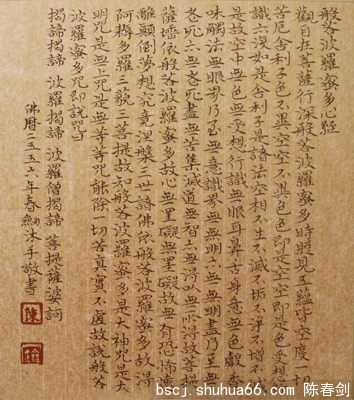 般若波羅蜜多心經
觀自在菩薩行深般若波羅蜜多時照見五蘊皆空度一切
苦厄舍利子色不異空空不異色色即是空空即是色受想行
識亦復如是舍利子是諸法空相不生不滅不垢不淨不增不減
是故空中無色無受想行識無眼耳鼻舌身意無色聲香
味觸法無眼界乃至無意識界無無明亦無無明盡乃至無
老死亦無老死盡無苦集滅道無智亦無得以無所得故菩提
薩埵依般若波羅蜜多故心無罣礙無罣礙故無有恐怖遠
離顛倒夢想究竟涅槃三世諸佛依般若波羅蜜多故得
阿耨多羅三藐三菩提故知般若波羅蜜多是大神咒是大
明咒是無上咒是無等等咒能除一切苦真實不虛故說般若
波羅蜜多咒即說咒曰
揭諦揭諦 波羅揭諦 波羅僧揭諦 菩提薩婆訶
佛曆二五五六年春劍沐手敬書
陳
bscj.shuhua66.com 陈春剑